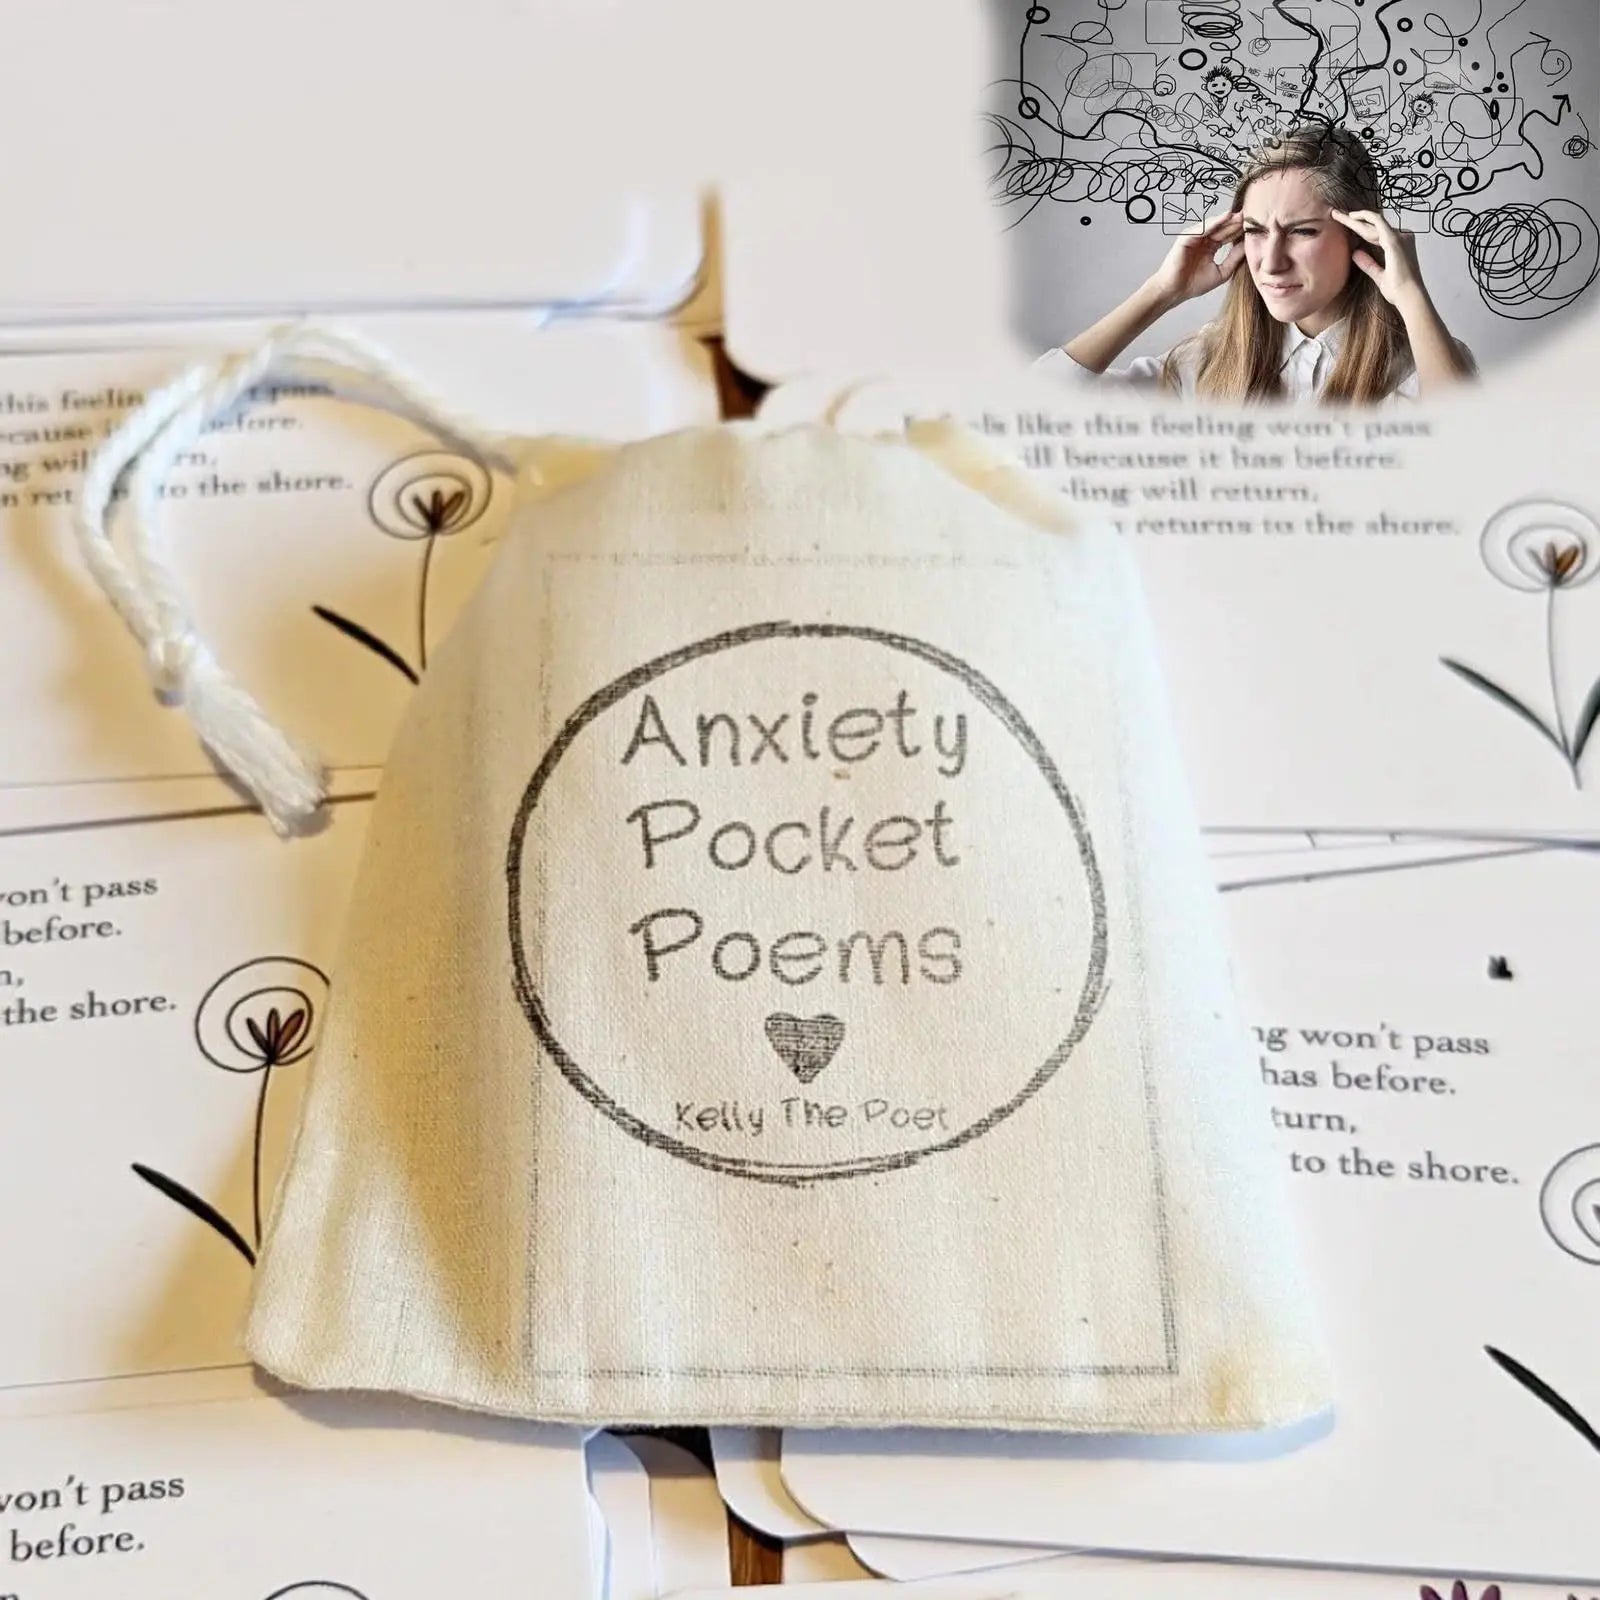 this feelin
before.
ng wil
to the shore.
like this feeling won't pass
because it has before.
will return,
returns to the shore.
Anxiety
Pocket
Poems
Kelly The Poet
won't pass
before.
the shore.
won't pass
has before.
turn,
to the shore.
won't pass
before.